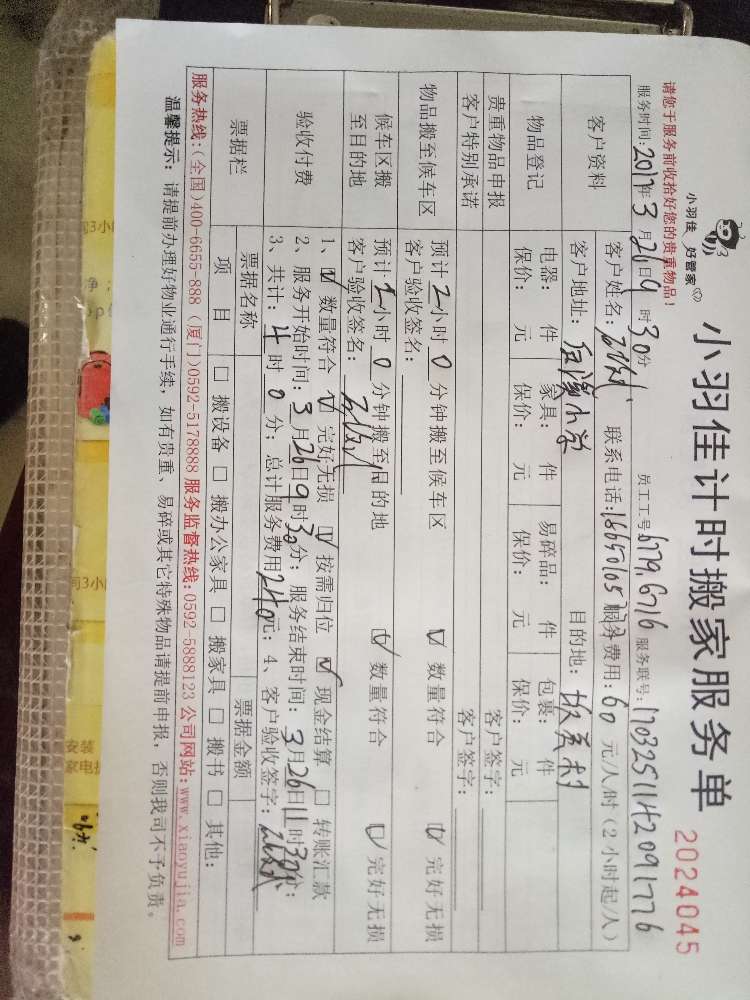 小羽佳 好管家
小羽佳计时搬家服务单
2024045
请您于服务前收拾好您的贵重物品！
服务时间:2017年3月26日9时30分 员工工号:6779.6716 服务联号:17032511420917776
客户资料
客户姓名: 联系电话: 服务费用:60元/人/时(2小时起/人)
客户地址: 小学 目的地: 村
物品登记
电器: 件 家具: 件 易碎品: 件 包裹: 件
保价: 元 保价: 元 保价: 元 保价: 元
贵重物品申报 客户签字:
客户特别承诺 客户签字:
物品搬至候车区
预计2小时0分钟搬至候车区 ☑ 数量符合 ☑ 完好无损
客户验收签名:
候车区搬至目的地
预计2小时0分钟搬至目的地 ☑ 数量符合 ☑ 完好无损
客户验收签名:
验收付费
1、☑ 数量符合 ☑ 完好无损 ☑ 按需归位 ☑ 现金结算 □ 转账汇款
2、服务开始时间:3月26日9时30分; 服务结束时间:3月26日11时30分;
3、共计:4时0分; 总计服务费用240元; 4、客户验收签字:
票据栏
票据名称 票据金额
项 目 □ 搬设备 □ 搬办公家具 □ 搬家具 □ 搬书 □ 其他:
服务热线:(全国)400-6655-888 (厦门)0592-5178888 服务监督热线:0592-5888123 公司网站:www.xiaoyujia.com
温馨提示: 请提前办理好物业通行手续, 如有贵重、易碎或其它特殊物品请提前申报, 否则我司不予负责。